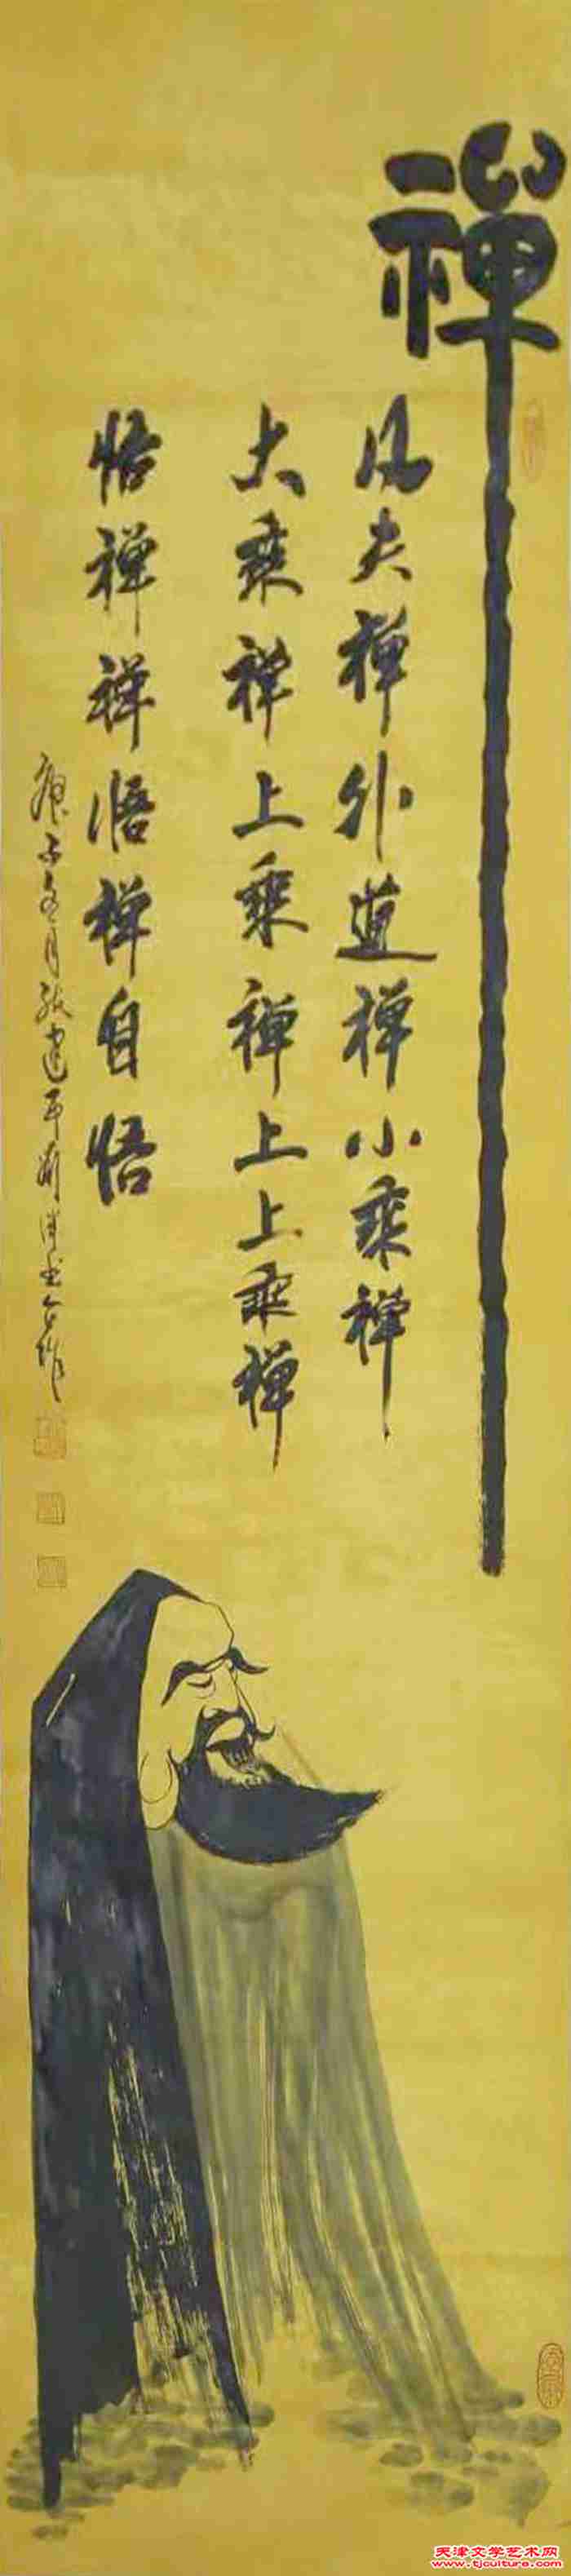 禅
凡夫禅外道禅小乘禅
大乘禅上乘禅上上乘禅
悟禅禅悟禅自悟
庚子冬月张建平
书合作
天津文学艺术网
www.tjculture.com